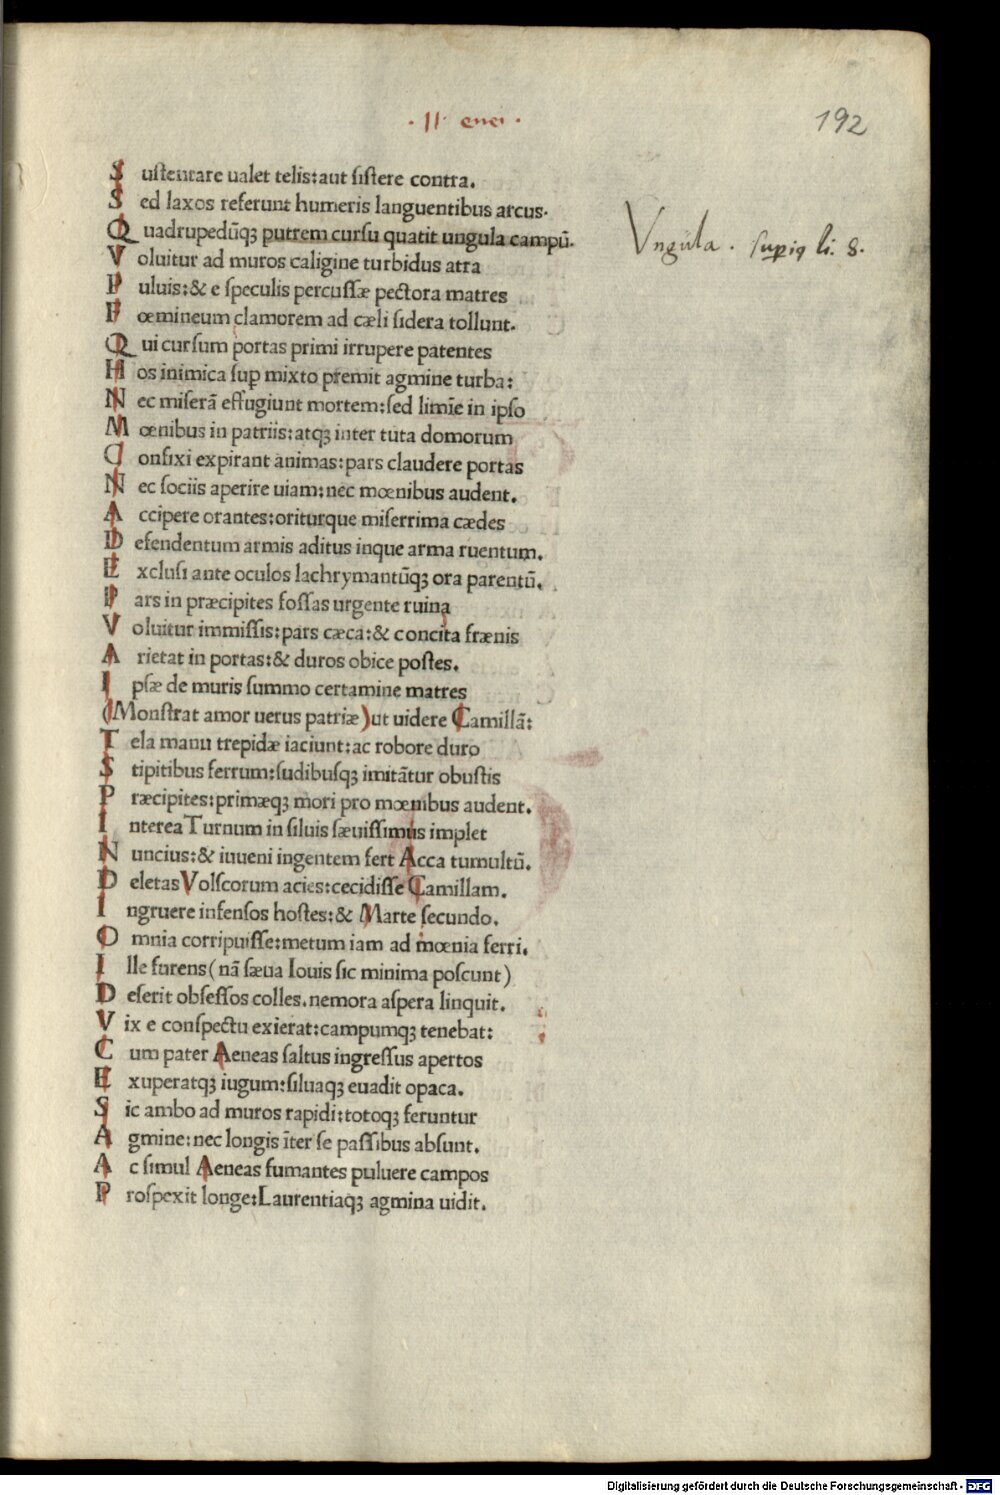 · 11 · enei ·
192
S uſtentare ualet telis:aut ſiſtere contra.
S ed laxos referunt humeris languentibus arcus·
Q uadrupedũqꝫ putrem curſu quatit ungula campũ.
Vngula . ſupiꝯ li. 8.
V oluitur ad muros caligine turbidus atra
P uluis:& e ſpeculis percuſſæ pectora matres
F œmineum clamorem ad cæli ſidera tollunt.
Q ui curſum portas primi irrupere patentes
H os inimica ſuꝑ mixto premit agmine turba:
N ec miſerã effugiunt mortem:ſed limĩe in ipſo
M œnibus in patriis:atqꝫ inter tuta domorum
C onfixi expirant animas:pars claudere portas
N ec ſociis aperire uiam:nec mœnibus audent.
A ccipere orantes:oriturque miſerrima cædes
D efendentum armis aditus inque arma ruentum.
E xcluſi ante oculos lachrymantũqꝫ ora parentũ.
P ars in præcipites foſſas urgente ruina
V oluitur immiſſis:pars cæca:& concita frænis
A rietat in portas:& duros obice poſtes.
I pſæ de muris ſummo certamine matres
(Monſtrat amor uerus patriæ)ut uidere Camillã:
T ela manu trepidæ iaciunt:ac robore duro
S tipitibus ferrum:ſudibuſqꝫ imitãtur obuſtis
P ræcipites:primæqꝫ mori pro mœnibus audent.
I nterea Turnum in ſiluis ſæuiſſimus implet
N uncius:& iuueni ingentem fert Acca tumultũ.
D eletas Volſcorum acies:cecidiſſe Camillam.
I ngruere infenſos hoſtes:& Marte ſecundo.
O mnia corripuiſſe:metum iam ad mœnia ferri.
I lle furens(nã ſæua Iouis ſic minima poſcunt)
D eſerit obſeſſos colles.nemora aſpera linquit.
V ix e conſpectu exierat:campumqꝫ tenebat:
C um pater Aeneas ſaltus ingreſſus apertos
E xuperatqꝫ iugum:ſiluaqꝫ euadit opaca.
S ic ambo ad muros rapidi:totoqꝫ feruntur
A gmine:nec longis ĩter ſe paſſibus abſunt.
A c ſimul Aeneas fumantes puluere campos
P roſpexit longe:Laurentiaqꝫ agmina uidit.
Digitalisierung gefördert durch die Deutsche Forschungsgemeinschaft - DFG